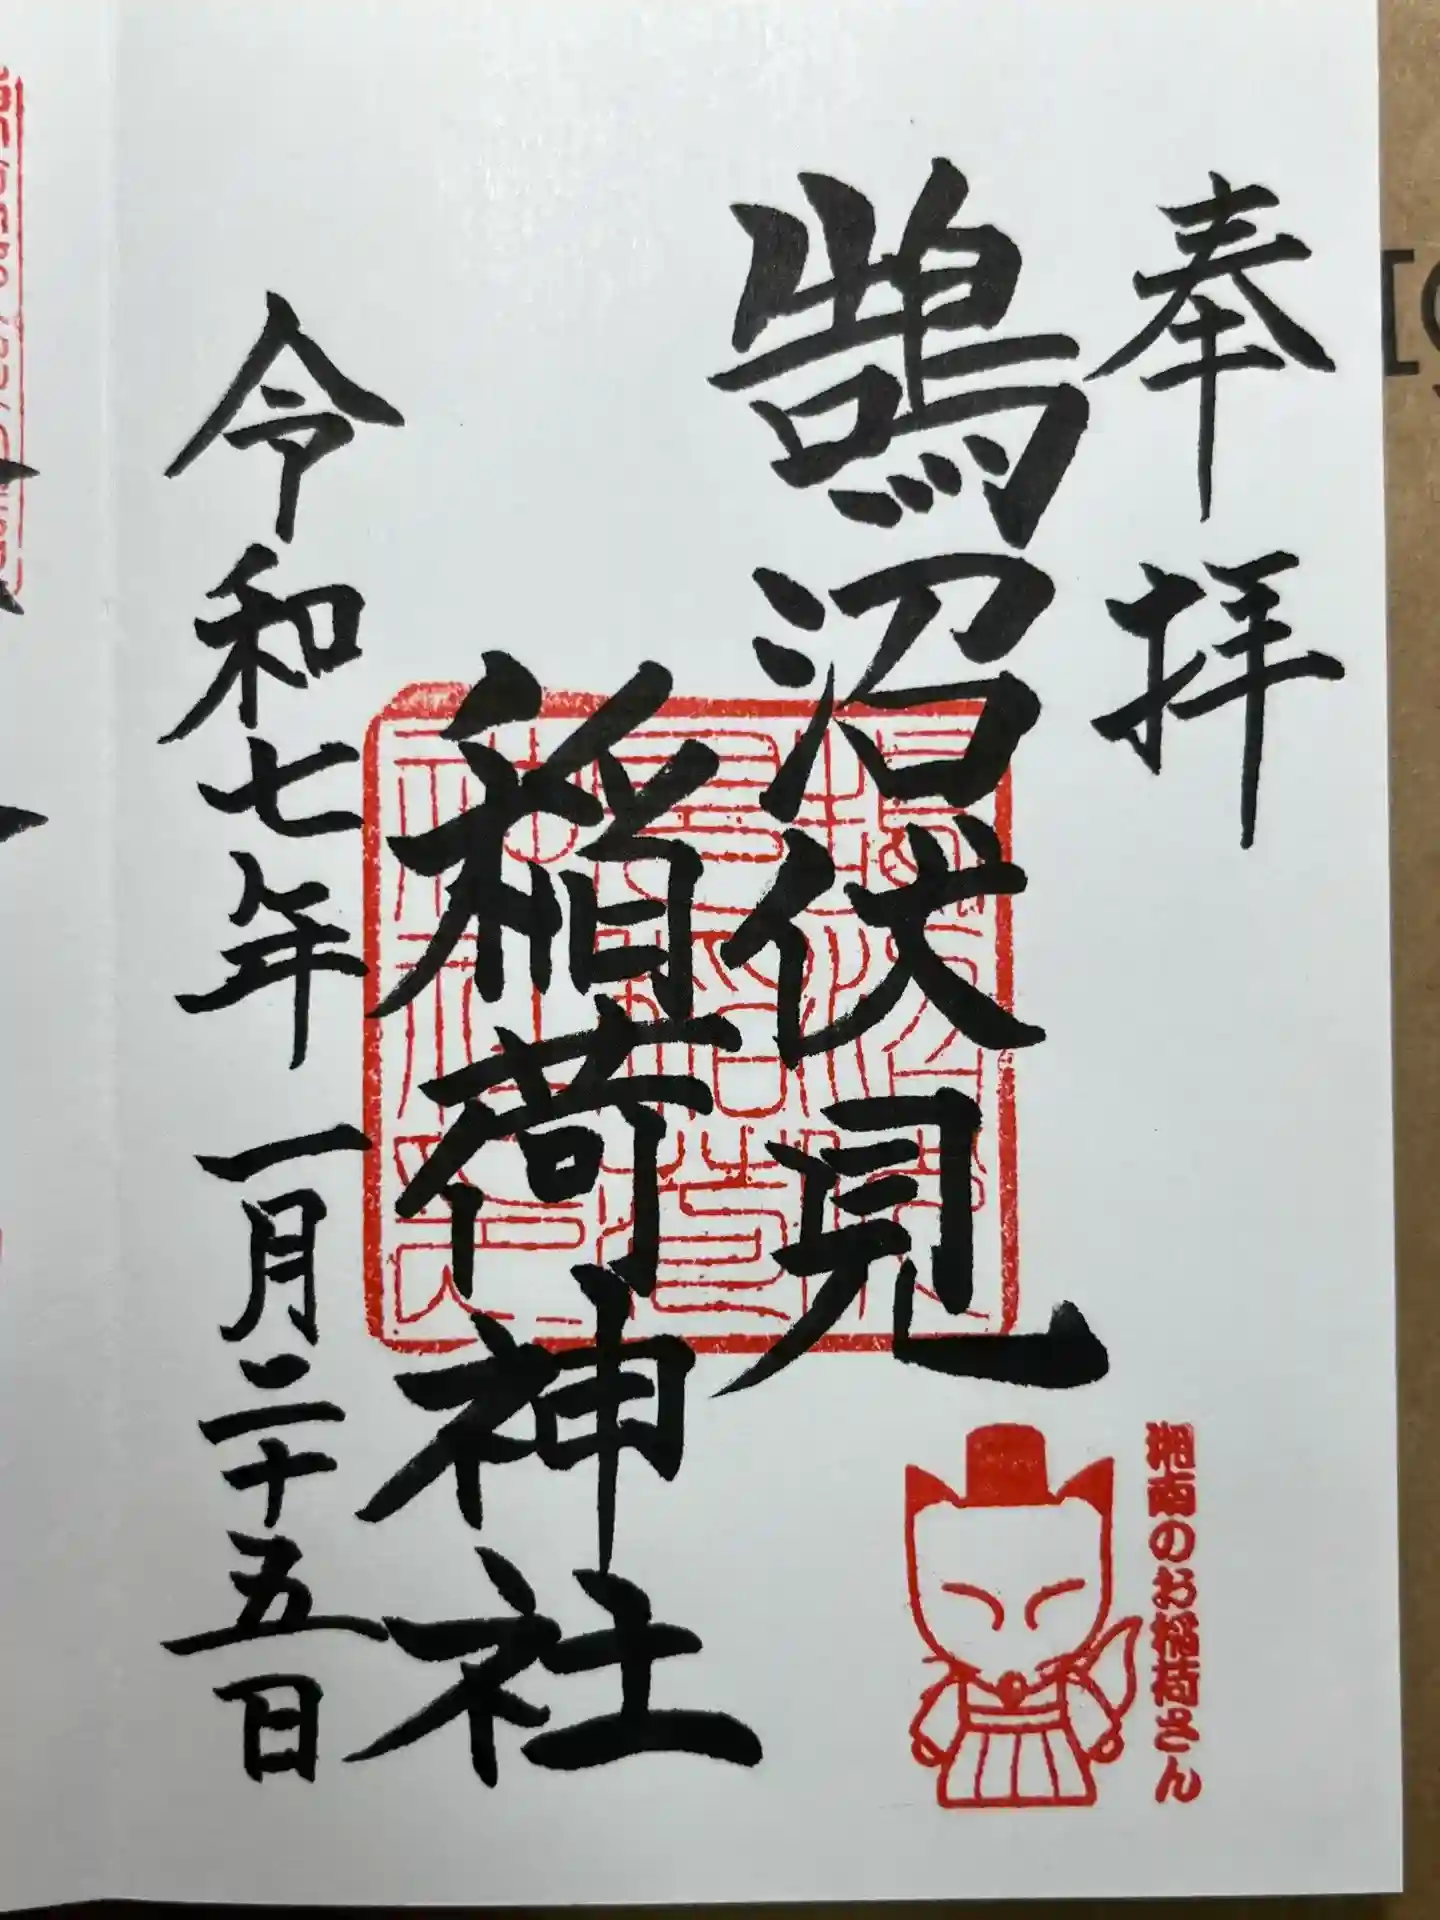 奉拝
鵠沼伏見
稲荷神社
令和七年 一月二十五日
湘南のお稲荷さん